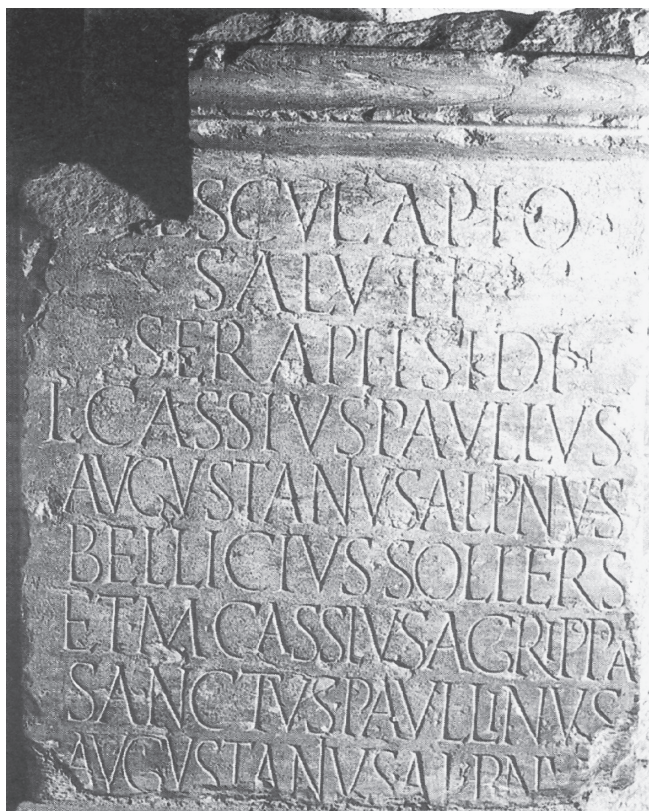 ESCVLAPIO
SALVTI
SERAPI·ISIDI
L·CASSIVS·PAVLLVS
AVGVSTANVS·ALPNVS
BELLICIVS·SOLLERS
ET·M·CASSIVS·AGRIPPA
SANCTVS·PAVLLINVS
AVGVSTANVS